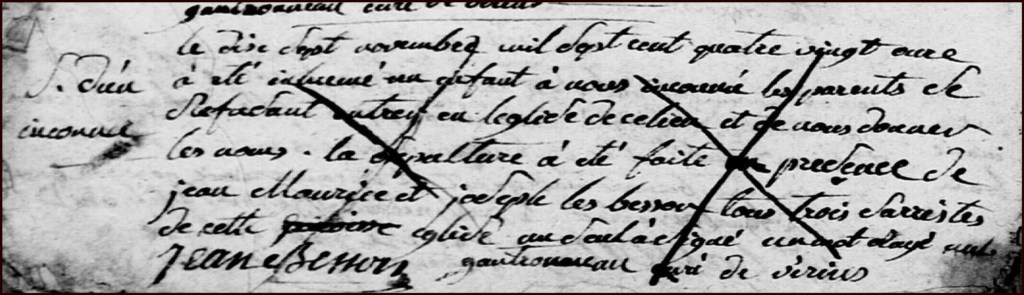 gautronneau curé de virieu
le dixsept novembre mil sept cent quatre vingt onze
S. dieu
à été inhumé un enfant à nous inconnu les parents se
inconnu
refusant entrer en leglise de ce lieu et de nous donner
les noms. la sepulture à été faite en presence de
jean Maurice et joseph les besson tous trois
de cette eglise un seul à signé un mot rayé nul
Jean Besson
gautronneau curé de virieu